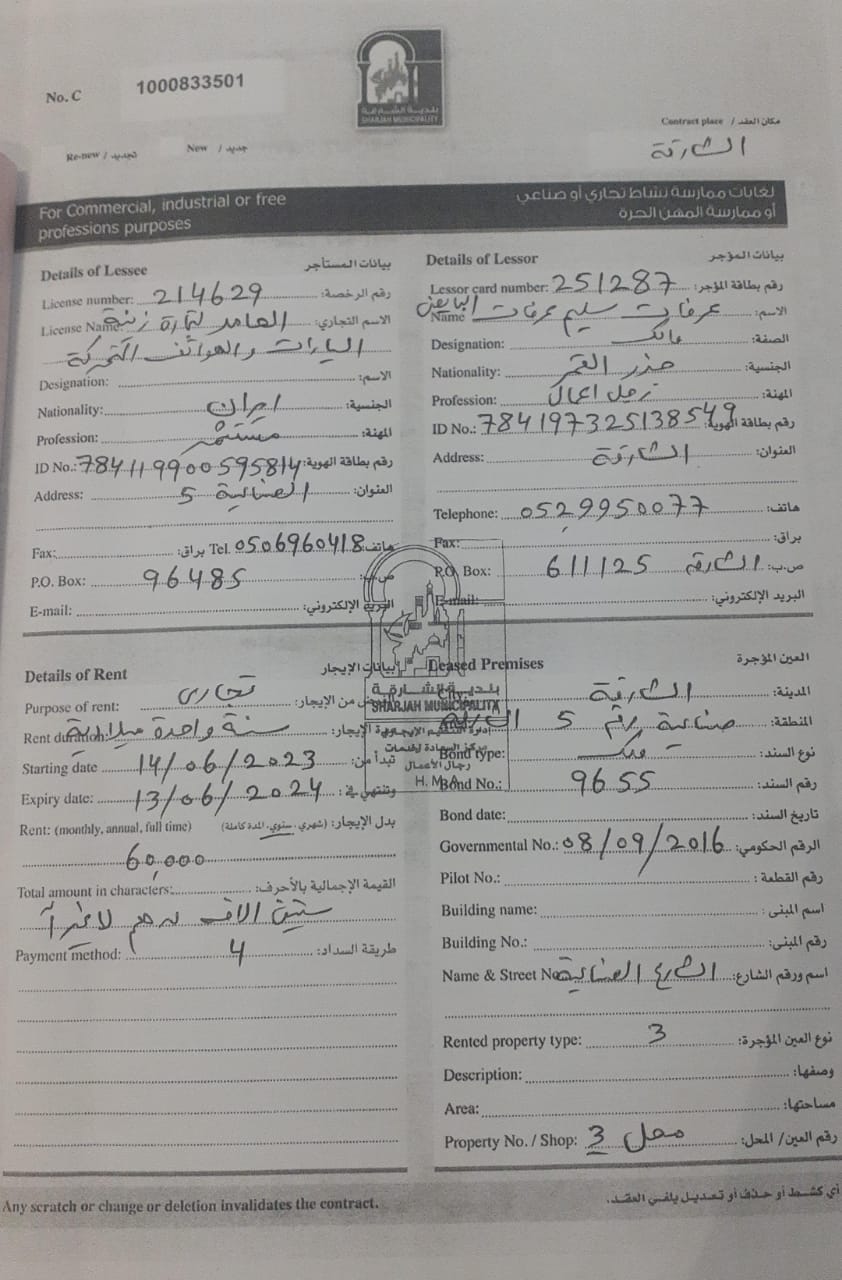 No. C 1000833501
بلدية الشارقة
SHARJAH MUNICIPALITY
Contract place / مكان العقد
الشارقة
Re-new / تجديد New / جديد
For Commercial, industrial or free professions purposes
لغايات ممارسة نشاط تجاري أو صناعي
أو ممارسة المهن الحرة
Details of Lessee بيانات المستأجر
License number: 214629 رقم الرخصة:
License Name: العامد لتجارة زينة الاسم التجاري:
السيارات والهواتف المتحركة
Designation: الاسم:
Nationality: ايران الجنسية:
Profession: مستثمر المهنة:
ID No.: 784119900595814 رقم بطاقة الهوية:
Address: الصناعية 5 العنوان:
Fax: براق: Tel. 0506960418 هاتف:
P.O. Box: 96485 ص.ب:
E-mail: البريد الإلكتروني:
Details of Lessor بيانات المؤجر
Lessor card number: 251287 رقم بطاقة المؤجر:
Name عرفات سليم عرفات الاسم:
Designation: مالك الصفة:
Nationality: جزر القمر الجنسية:
Profession: رجل اعمال المهنة:
ID No.: 784197325138549 رقم بطاقة الهوية:
Address: الشارقة العنوان:
Telephone: 0529950077 هاتف:
Fax: براق:
P.O. Box: 611125 الشارقة ص.ب:
E-mail: البريد الإلكتروني:
Details of Rent بيانات الإيجار
Purpose of rent: تجاري من الإيجار:
Rent duration: سنة واحدة ميلادية الإيجار:
Starting date 14/06/2023 تبدأ من:
Expiry date: 13/06/2024 وتنتهي في:
Rent: (monthly, annual, full time) بدل الإيجار: (شهري، سنوي، المدة كاملة)
60,000
Total amount in characters: القيمة الإجمالية بالأحرف:
ستين الاف درهم لا غير
Payment method: 4 طريقة السداد:
بلدية الشارقة
SHARJAH MUNICIPALITY
رجال الأعمال
H. M. A
Leased Premises العين المؤجرة
الشارقة المدينة:
صناعية رقم 5 المنطقة:
Bond type: ملك نوع السند:
Bond No.: 9655 رقم السند:
Bond date: تاريخ السند:
Governmental No.: 08/09/2016 الرقم الحكومي:
Pilot No.: رقم القطعة:
Building name: اسم المبنى:
Building No.: رقم المبنى:
Name & Street No الشارع الصناعية اسم ورقم الشارع:
Rented property type: 3 نوع العين المؤجرة:
Description: وصفها:
Area: مساحتها:
Property No. / Shop: محل 3 رقم العين/ المحل:
Any scratch or change or deletion invalidates the contract. أي كشط أو حذف أو تعديل يلغي العقد.